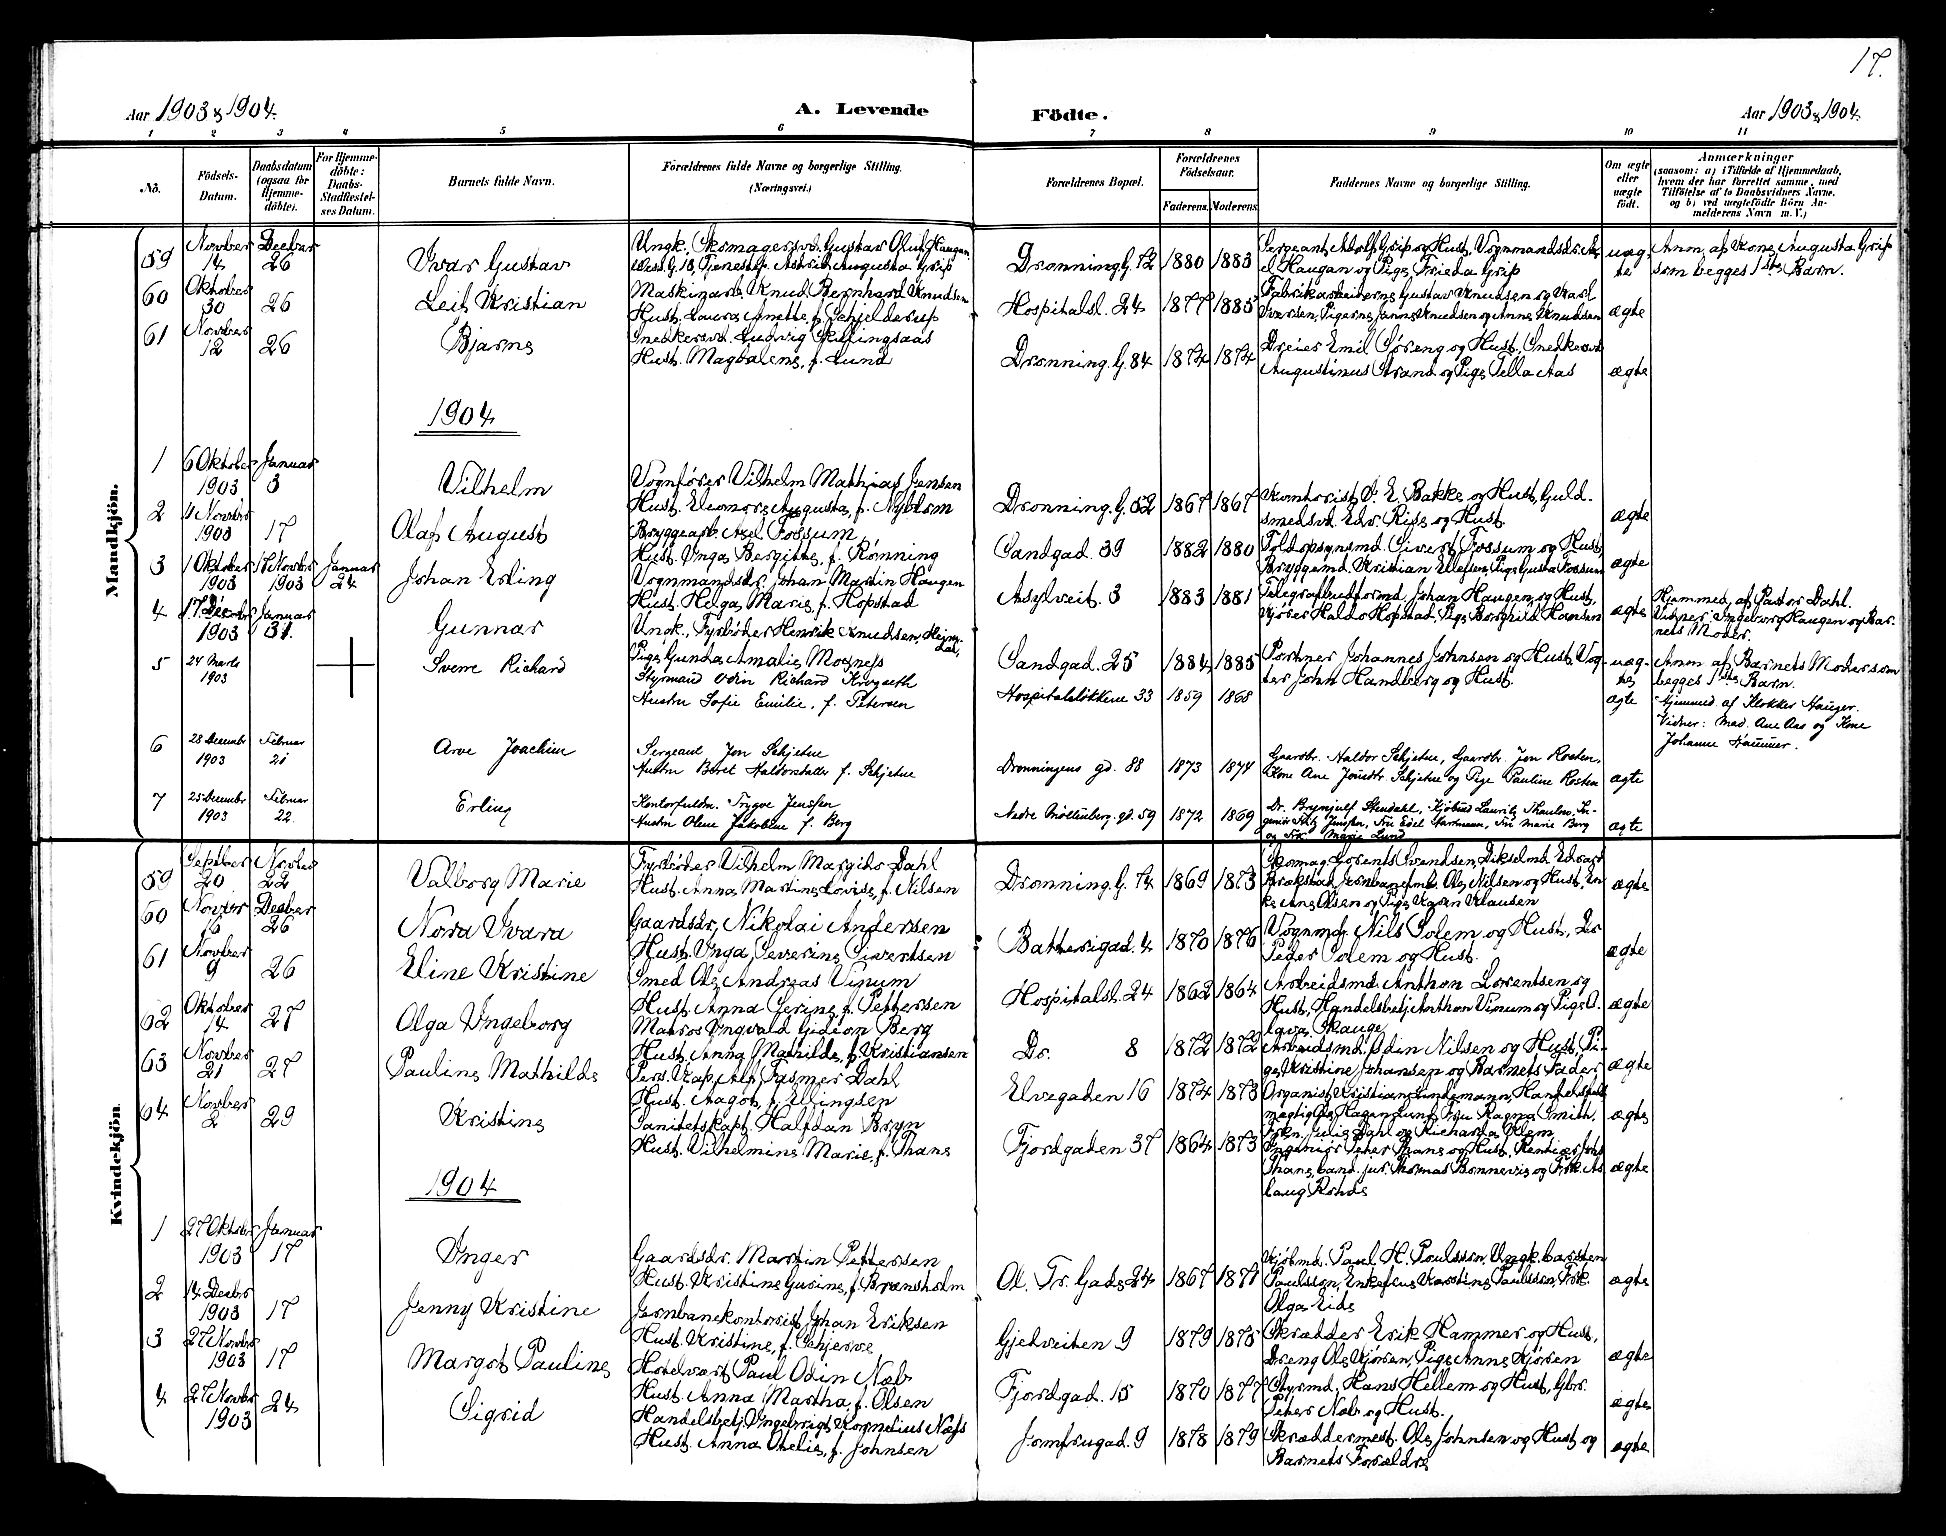 17.
Aar 1903 & 1904.
A. Levende Fødte.
Aar 1903 & 1904.
1 2 3 4 5 6 7 8 9 10 11
No.
Fødsels-Datum.
Daabsdatum (ogsaa for Hjemmedøbte).
For Hjemmedøbte: Daabs-Stadfæstelses Datum.
Barnets fulde Navn.
Forældrenes fulde Navne og borgerlige Stilling. (Næringsvei.)
Forældrenes Bopæl.
Forældrenes Fødselsaar.
Faderens. Moderens.
Faddernes Navne og borgerlige Stilling.
Om ægte eller uægte født.
Anmærkninger
(saasom: a) i Tilfælde af Hjemmedaab, hvem der har forrettet samme, med Tilføielse af to Daabsvidners Navne, og b) ved uægtefødte Børn Anmelderens Navn m. V.)
Mandkjøn.
59 Novber 14 Decbar 26 Ivar Gustav
Ungk. Skomagersvd. Gustav Oluf Haugan,
G. 18, Tjenestep. Astrid Augusta Grip
Dronning. G. 72 1880 1883
Sergeant Adolf Grip og Hust, Vognmandsdr.
Haugan og Pige Frieda Grip
uægte
Anm. af Kone Augusta Grip
som begges 1ste Barn.
60 Oktober 30 26 Leif Kristian
Maskinarb. Knud Bernhard Knudsen
Hust. Laura Anette, f. Schjelderup
Hospitalsl. 24 1877 1885
Fabrikarbeiderne Gustav Knudsen og Karl
Iversen, Pigerne Janna Knudsen og Anna Knudsen
ægte
61 Novber 12 26 Bjarne
Snedkersvd. Ludvig Skillingsaas
Hust. Magdalene, f. Lund
Dronning. G. 84 1874 1874
Dreier Emil Søreng og Hust, Snedkersvd
Augustinus Strand og Pige Pella Aas
ægte
1904
1 6 Oktober 1903 Januar 3 Vilhelm
Vognfører Vilhelm Mathias Jensen
Hust. Eleonora Augusta, f. Nyblom
Dronning. G. 52 1867 1867
Kontorist O. E. Bakke og Hust, Guld-
smedsvd. Edv. Rise og Hust.
ægte
2 4 Novbr 1903 17 Olaf August
Bryggearb. Axel Fossum
Hust. Inga Bergitte, f. Rønning
Sandgad. 39 1882 1880
Toldopsynsmd. Sivert Fossum og Hust,
Bryggemd. Kristian Ellefsen, Pige Gusta Fossum
ægte
3 1 Oktober 1903 15 Novber 1903 Januar 24 Johan Erling
Vognmandsdr. Johan Martin Haugen
Hust. Helga Marie f. Hopstad
Asylveit. 3 1883 1881
Telegrafbudformd. Johan Haugen og Hust,
Kjører Haldo Hopstad, Pige Borghild Hansen
ægte
Hjemmed. af Pastor Dahl.
Vidner: Ingeborg Haugen og Bar-
nets Moder.
4 17 Decbr 1903 Januar 31. Gunnar
Ungk., Fyrbøder Henrik Knudsen,
Pige Gunda Amalie Moxness
Sandgad. 25 1884 1885
Portner Johannes Johnsen og Hust, Vog-
ter John Handberg og Hust.
uægte
Anm af Barnets Moder som
begges 1ste Barn.
5 24 Marts 1903 Sverre Richard
Styrmand Odin Richard Krogseth
Hustru Sofie Emilie, f. Petersen
Hospitalsløkkene 33 1859 1868
ægte
Hjemmed. af Klokker Hauger.
Vidner: Mad. Ane Aas og Kone
Johanne Hammer.
6 28 December 1903 Februar 21 Arve Joachim
Sergeant Jon Schjetne
Hustru Beret Haldorsdatter f. Schjetne
Dronningens gd. 88 1873 1874
Gaardbr. Haldor Schjetne, Gaardbr. Jon Rosten,
Kone Ane Jonsdtr. Schjetne og Pige Pauline Rosten
ægte
7 25 December 1903 Februar 22 Erling
Kontorfuldm. Trygve Jenssen
Hustru Olene Jakobine f. Berg
Nedre Møllenberg. gd. 59 1872 1869
Dr. Brynjulf Stendahl, Kjøbmd Lauritz Thaulow, In-
geniør Fritz Jenssen, Fru Edel Hartmann, Fru Marie Berg
og Frk. Marie Lund
ægte
Kvindekjøn.
59 Septber 20 Novber 22 Valborg Marie
Fyrbøder Vilhelm Margido Dahl
Hust. Anna Martine Lovise, f. Nilsen
Dronning. G. 74 1869 1873
Skomag. Lorents Svendsen, Dikselmd. Edvard
Brækstad, Jernbanefmd. Ole Nilsen og Hust, En-
ke Ane Olsen og Pige Karen Klausen
ægte
60 Novber 15 Decber 26 Nora Ivara
Gaardsdr. Nikolai Andersen
Hust. Inga Severine Sivertsen
Batterigad. 4 1870 1876
Vognmd. Nils Solem og Hust, Do
Peder Solem og Hust.
ægte
61 Novber 9 26 Eline Kristine
Smed Ole Andreas Vinum
Hust. Anna Serine f. Pettersen
Hospitalsl. 24 1862 1864
Arbeidsmd. Anthon Lorentsen og
Hust, Handelsbetj. Anthon Vinum og Pige O-
lava Skauge
ægte
62 Oktober 14 27 Olga Ingeborg
Matros Ingvald Gideon Berg
Hust. Anna Mathilde, f. Kristiansen
Do. 8 1872 1872
Arbeidsmd. Odin Nilsen og Hust, Pi-
ge Kristine Johansen og Barnets Fader
ægte
63 Novber 21 27 Pauline Mathilde
Pers. Kap. Alf Fasmer Dahl
Hust. Aagot, f. Ellingsen
Elvegaden 16 1874 1873
Organist Kristian Lindemann, Handelsfuld-
mægtig Ole Hagen Lund, Fru Ragna Smith,
Frkn. Julie Dahl og Richarda Klem
ægte
64 Novber 2 29 Kristine
Sanitetskapt. Halfdan Bryn
Hust. Vilhelmine Marie, f. Thans
Fjordgaden 37 1864 1873
Ingeniør Peter Thans og Hust, Rentier John
Thans, Cand. jur. Thomas Bonnevie og Frk. As-
laug Rohde
ægte
1904
1 27 Oktober 1903 Januar 17 Inger
Gaardsdr. Martin Pettersen
Hust. Kristine Gurine, f. Brænsholm
Ol. Tr. Gade 24 1867 1871
Kjøbmd. Paul H. Poulsson, Ungk. Carsten
Paulsson, Enkefrue Karstine Paulsson, Frk.
Olga Eide
ægte
2 14 Decbr 1903 17 Jenny Kristine
Jernbanekontorist Johan Eriksen
Hust. Kristine, f. Schjerve
Gjelveiten 9 1879 1875
Skrædder Erik Hammer og Hust,
Dreng Ole Kjøren, Pige Anna Kjøren
ægte
3 27 Novbr 1903 17 Margot Pauline
Hotelvært Paul Odin Næb
Hust. Anna Martha, f. Olsen
Fjordgad. 15 1870 1877
Styrmd. Hans Hellem og Hust, Gbr.
Peter Næb og Hust.
ægte
4 27 Novbr 1903 24 Sigrid
Handelsbetj. Ingebrigt Kornelius Næss
Hust. Anna Ovelie, f. Johnsen
Jomfrugad. 9 1878 1879
Skræddermest. Ole Johnsen og Hust og
Barnets Forældre
ægte